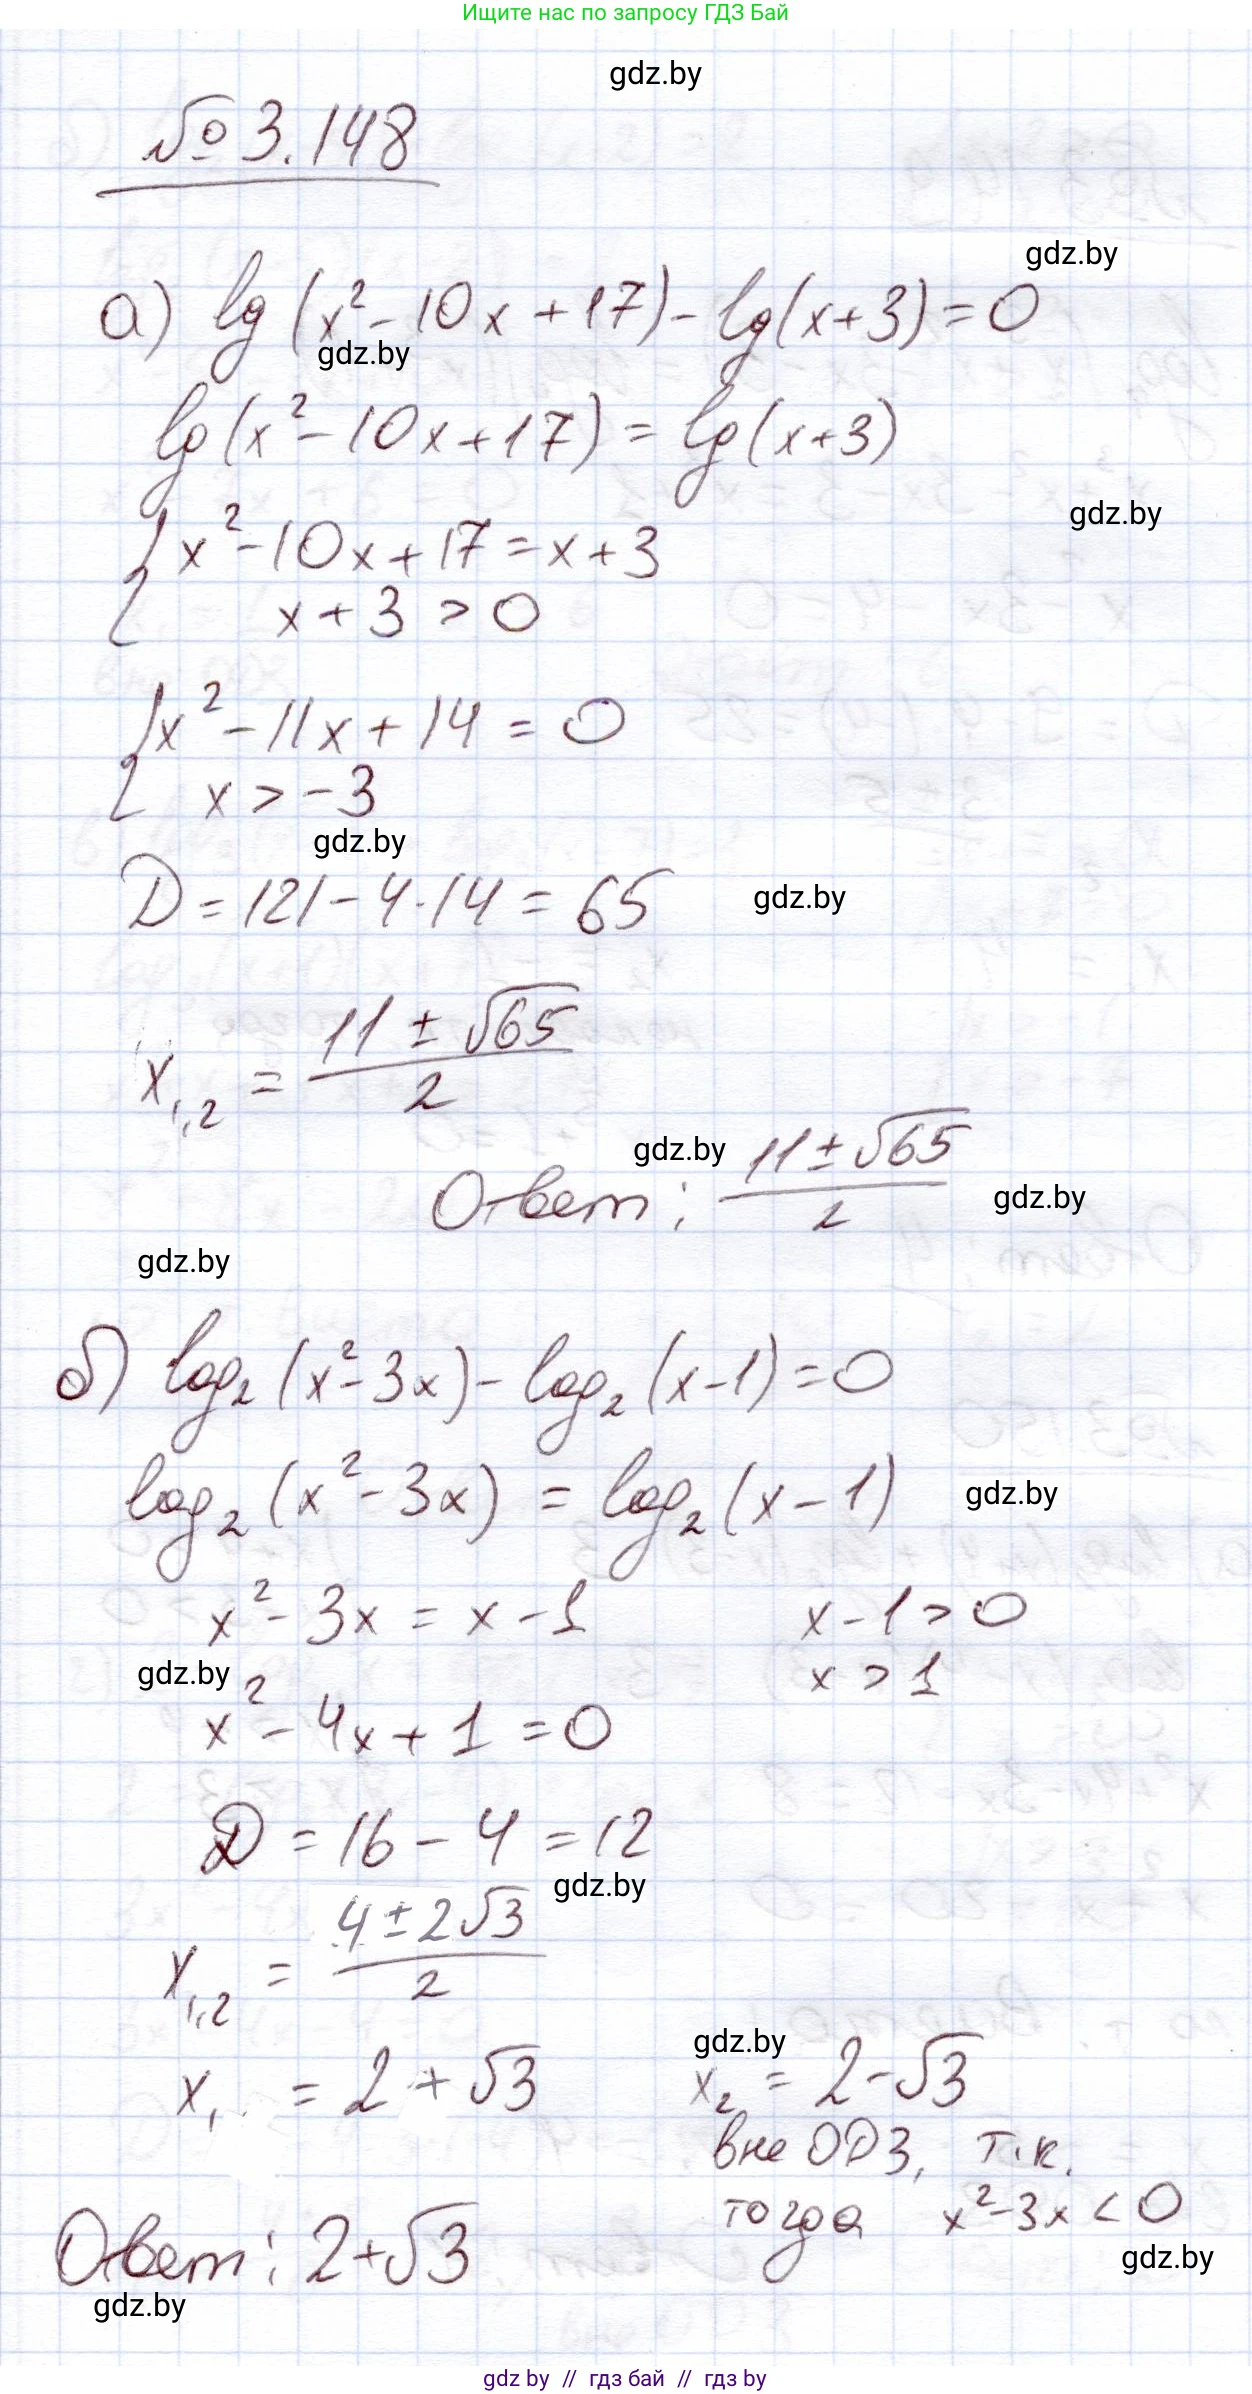 Ищите нас по запросу ГДЗ Бай
gdz.by
№ 3.148
gdz.by
а) lg(x² - 10x + 17) - lg(x+3) = 0
gdz.by
lg(x² - 10x + 17) = lg(x+3)
gdz.by
{ x² - 10x + 17 = x + 3
x + 3 > 0
{ x² - 11x + 14 = 0
x > -3
gdz.by
D = 121 - 4·14 = 65
gdz.by
x₁,₂ = (11 ± √65)/2
gdz.by
Ответ: (11 ± √65)/2
gdz.by
gdz.by
б) log₂(x² - 3x) - log₂(x-1) = 0
log₂(x² - 3x) = log₂(x - 1)
gdz.by
x² - 3x = x - 1
x - 1 > 0
gdz.by
x > 1
x² - 4x + 1 = 0
D = 16 - 4 = 12
gdz.by
x₁,₂ = (4 ± 2√3)/2
gdz.by
x₁ = 2 + √3
x₂ = 2 - √3
вне ОДЗ, т.к.
тогда x² - 3x < 0
Ответ: 2+√3
gdz.by
gdz.by
gdz by // гдз бай // гдз by